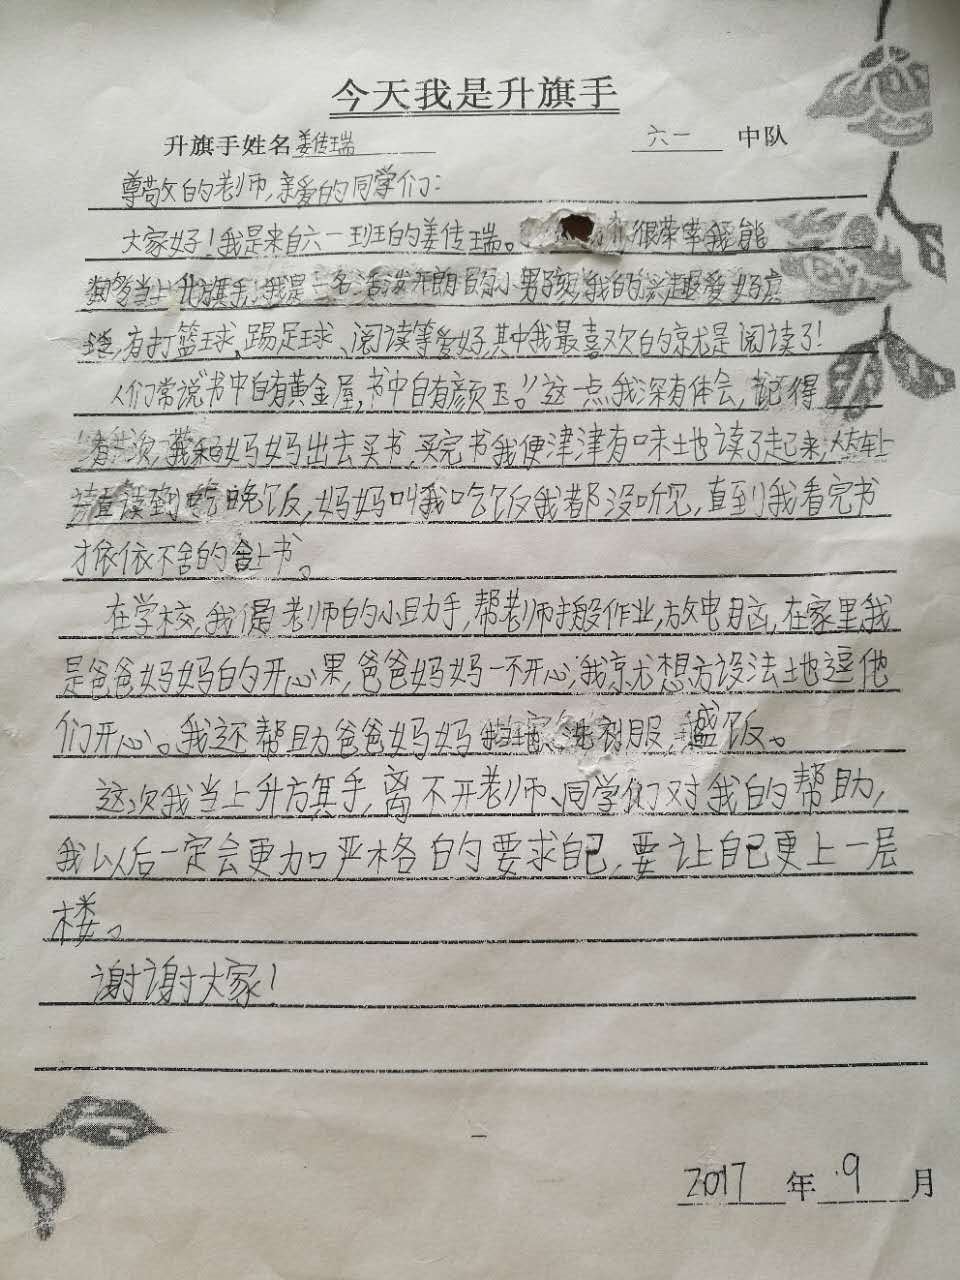 今天我是升旗手
升旗手姓名姜传瑞 六一 中队
尊敬的老师,亲爱的同学们:
大家好!我是来自六一班的姜传瑞。很荣幸我能
够当上升旗手!我是一名活泼开朗的小男孩,我的兴趣爱好广
,有打篮球、踢足球、阅读等爱好,其中我最喜欢的就是阅读了!
人们常说“书中自有黄金屋,书中自有颜玉。”这一点我深有体会,记得
有次,我和妈妈出去买书,买完书我便津津有味地读了起来,从车上
一直读到吃晚饭,妈妈叫我吃饭我都没听见,直到我看完书
才依依不舍的合上书。
在学校,我是老师的小助手,帮老师搬作业,放电脑,在家里,我
是爸爸妈妈的开心果,爸爸妈妈一不开心,我就想方设法地逗他
们开心。我还帮助爸爸妈妈洗衣服、盛饭。
这次我当上升旗手,离不开老师、同学们对我的帮助,
我以后一定会更加严格的要求自己,要让自己更上一层
楼。
谢谢大家!
2017年.9月